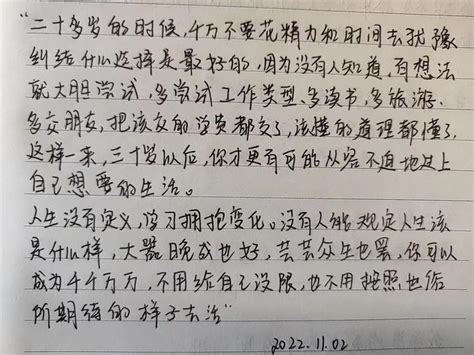 “二十多岁的时候，千万不要花精力和时间去犹豫
纠结什么选择是最好的，因为没有人知道，有想法
就大胆尝试，多尝试工作类型、多读书，多旅游，
多交朋友，把该交的学费都交了，该懂的道理都懂了，
这样一来，三十岁以后，你才更有可能从容不迫地过上
自己想要的生活。
人生没有定义，学习拥抱变化。没有人能规定人生该
是什么样，大器晚成也好，芸芸众生也罢，你可以
成为千千万万，不用给自己设限，也不用按照他给
所期待的样子去活”
2022.11.02